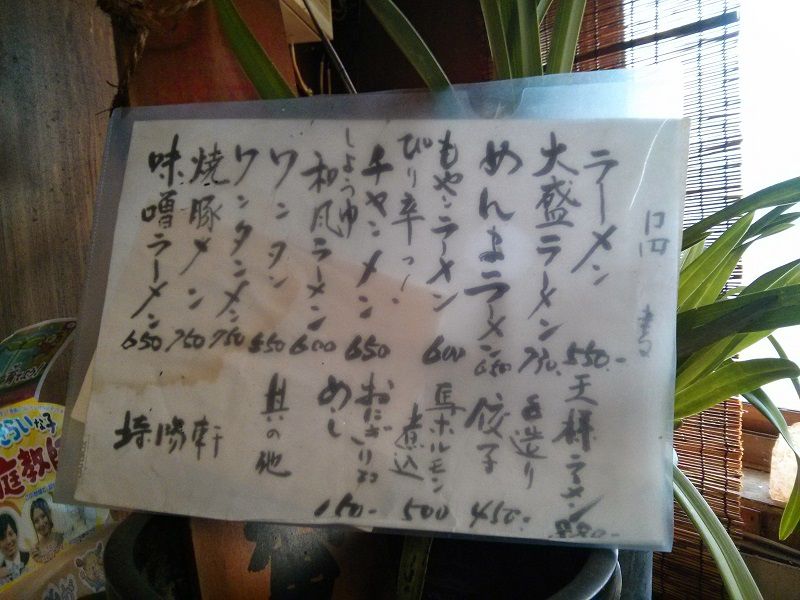 品書
ラーメン 550.-
大盛ラーメン 750.-
めんまラーメン 650
もやシラーメン 600
ぴり辛
チャンメン 650
しょうゆ
和風ラーメン 600
ワンタン 550
ワンタンメン 750
焼豚メン 750
味噌ラーメン 650
王様ラーメン 880.-
手造り
餃子 450.-
馬ホルモン
煮込 500
おにぎり
めし 150.-
其の他
埼陽軒
庭教師